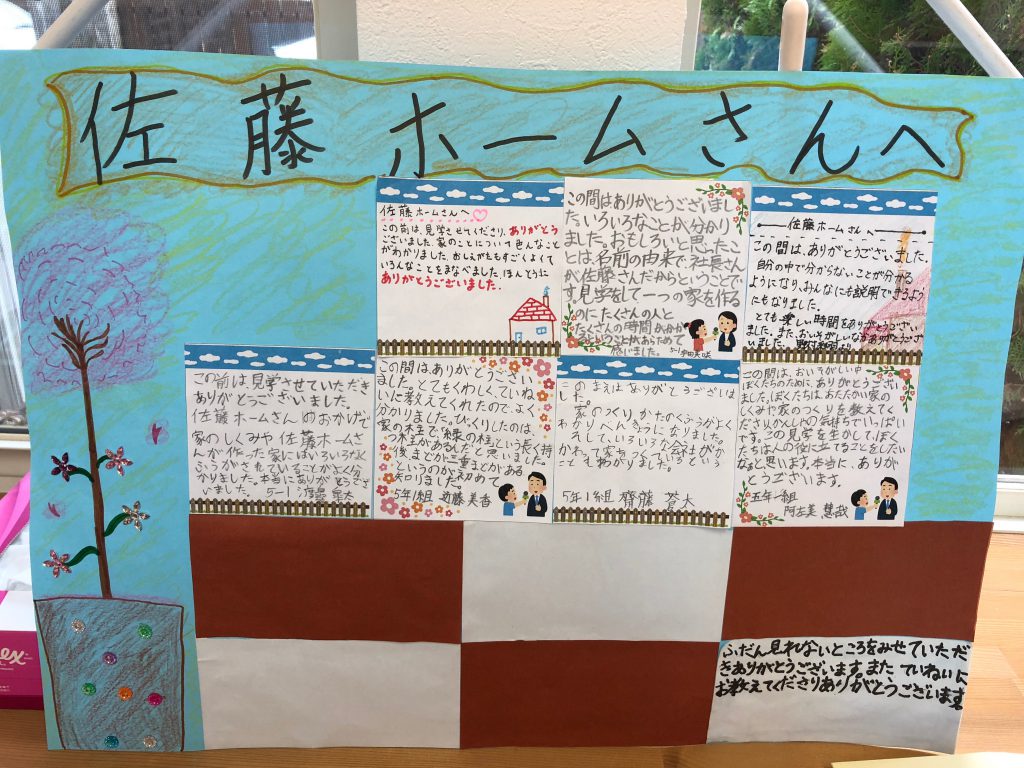 佐藤ホームさんへ
佐藤ホームさんへ
この前は、見学させてくださり、ありがとう
ございました。家のことについて色んなこと
がわかりました。おしえかたもすごくよくて
いろんなことをまなべました。ほんとうに
ありがとうございました。
この間はありがとうございまし
た。いろいろなことが分かり
ました。おもしろいと思ったこ
とは、名前の由来で、社長さん
が佐藤さんだからということで
す。見学をして一つの家を作る
のにたくさんの人と
たくさんの時間がかか
るということがあらためて
思いました。
佐藤ホームさんへ
この間は、ありがとうございました。
自分の中で分からないことが分かる
ようになり、みんなにも説明できるよう
にもなりました。
とても楽しい時間をありがとうござい
ました。
この前は見学させていただき
ありがとうございました。
佐藤ホームさんのおかげで
家のしくみや佐藤ホームさ
んが作った家にはいろいろなく
ふうがされていることがよく分
かりました。本当にありがとうござ
いました。
この間はありがとうござい
ました。とてもくわしく、ていね
いに教えてくれたので、よく
分かりました。びっくりしたのは、
家の柱で「緑の柱」という長く持
つ柱があるんだと思いました。
というのが初めて
知りました
5年1組 近藤 美香
このまえはありがとうございま
した。
家のつくりかたのくふうがよく
わかりべんきょうになりました。
こともわかりました。
5年1組 齋藤 蒼大
この間は、おいそがしい中
ぼくたちのために、ありがとうござい
ました。ぼくたちは、あたたかい家の
しくみや家のつくりを教えてく
ださりかんしゃの気持ちでいっぱい
です。この見学を生かして、ぼく
たちは人の役に立てることをしたい
なあと思います。本当に、ありが
とうございます。
五年一組
阿左美
ふだん見れないところをみせていただ
きありがとうございます。また、ていねいに
お教えてくださりありがとうございます。